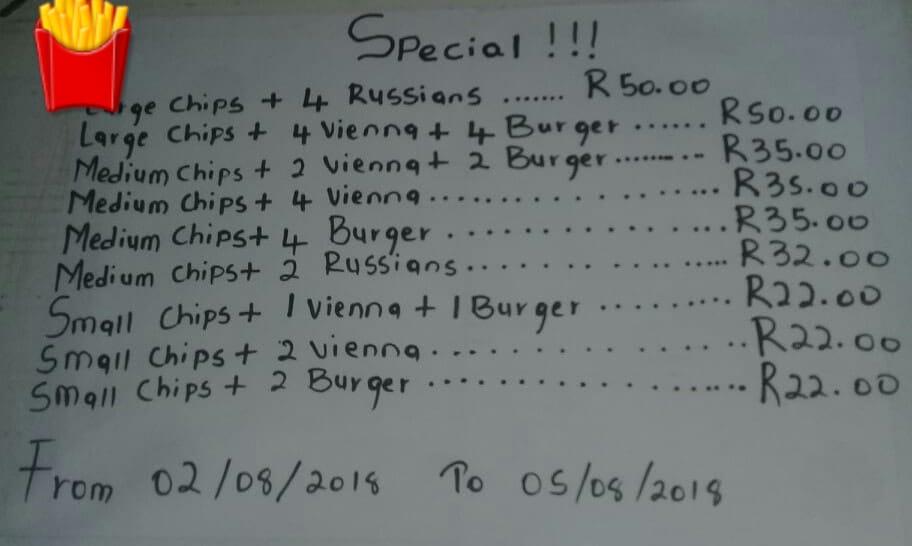 Special !!!
Large Chips + 4 Russians ....... R50.00
Large Chips + 4 Vienna + 4 Burger ...... R50.00
Medium Chips + 2 Vienna + 2 Burger ......... R35.00
Medium Chips + 4 Vienna .................. R35.00
Medium Chips + 4 Burger ................ R35.00
Medium Chips + 2 Russians ............... R32.00
Small Chips + 1 Vienna + 1 Burger .......... R22.00
Small Chips + 2 Vienna ................ R22.00
Small Chips + 2 Burger ................... R22.00
From 02/08/2018 To 05/08/2018